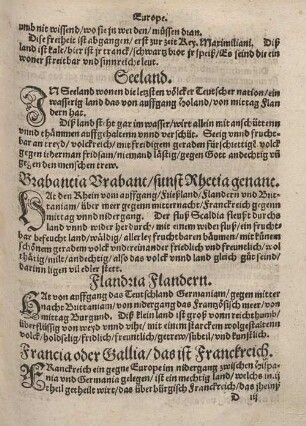 Europe.
vnb nit wissend/wo sie jn werden/müssen dran.
Dise freiheit ist abgangen/erst zur zeit Key. Maximiliani. Diß
land ist kale/bier ist jr tranck/schwartz brot jr speiß/Es seind die ein
woner streitbar vnd sinnreiche leut.
Seeland.
IN Seeland wonen die letsten völcker Teutscher nation/ein
wasserig land das von auffgang Holand/von mittag Flan
dern hat.
Diß land steht gar im wasser/wirt allein mit anschütten
vnnd thämmen auffgehalten vnnd verschüt. Seer vnnd frucht-
bar an treyd/volckreich/mit
gegen jederman fridsam/niemand lästig/gegen Gott andechtig vñ
gegen den menschen trew.
Brabantia Brabant/sunst Rhetia genant.
Hat der Rhein vom auffgang/Frießland/Flandern vnd But-
tanniam/über meer gegen mitternacht/Franckreich gegem
mittag vnnd nidergang. Der fluß Scaldia fleußt durchs
land vnnd wider herdurch/mit einem wider fluß/ein frucht-
bar befeucht land/wäldig/aller ley fruchtbaren bäumen/mit künem
schönem geradem volck vndereinander fridlich vnd freuntlich/wol
thätig/mile/andechtig/also das volck vnnd land gleich güt seind/
darinn ligen vil edler stett.
Flandria Flandern.
Hat von auffgang das Teutschland Germaniam/gegen mitter
nacht Buttaniam/von nidergang das Frantzösisch meer/von
mittag Burgund. Diß klein land ist groß vonn reichthumb/
überflüssig von weyd vnnd vihe/mit einem starckem wolgestalten
volck/holdselig/fridlich/freuntlich/gotsforchtig/subteil/vnd kunstlich.
Francia oder Gallia/das ist Franckreich.
FRanckreich ein gegne Europe im nidergang zwischen Hispa-
nia vnd Germania gelegen/ist ein mechtig land/welchs in .ij.
theil getheilt wirt/das überbürgisch Franckreich/das
D iij